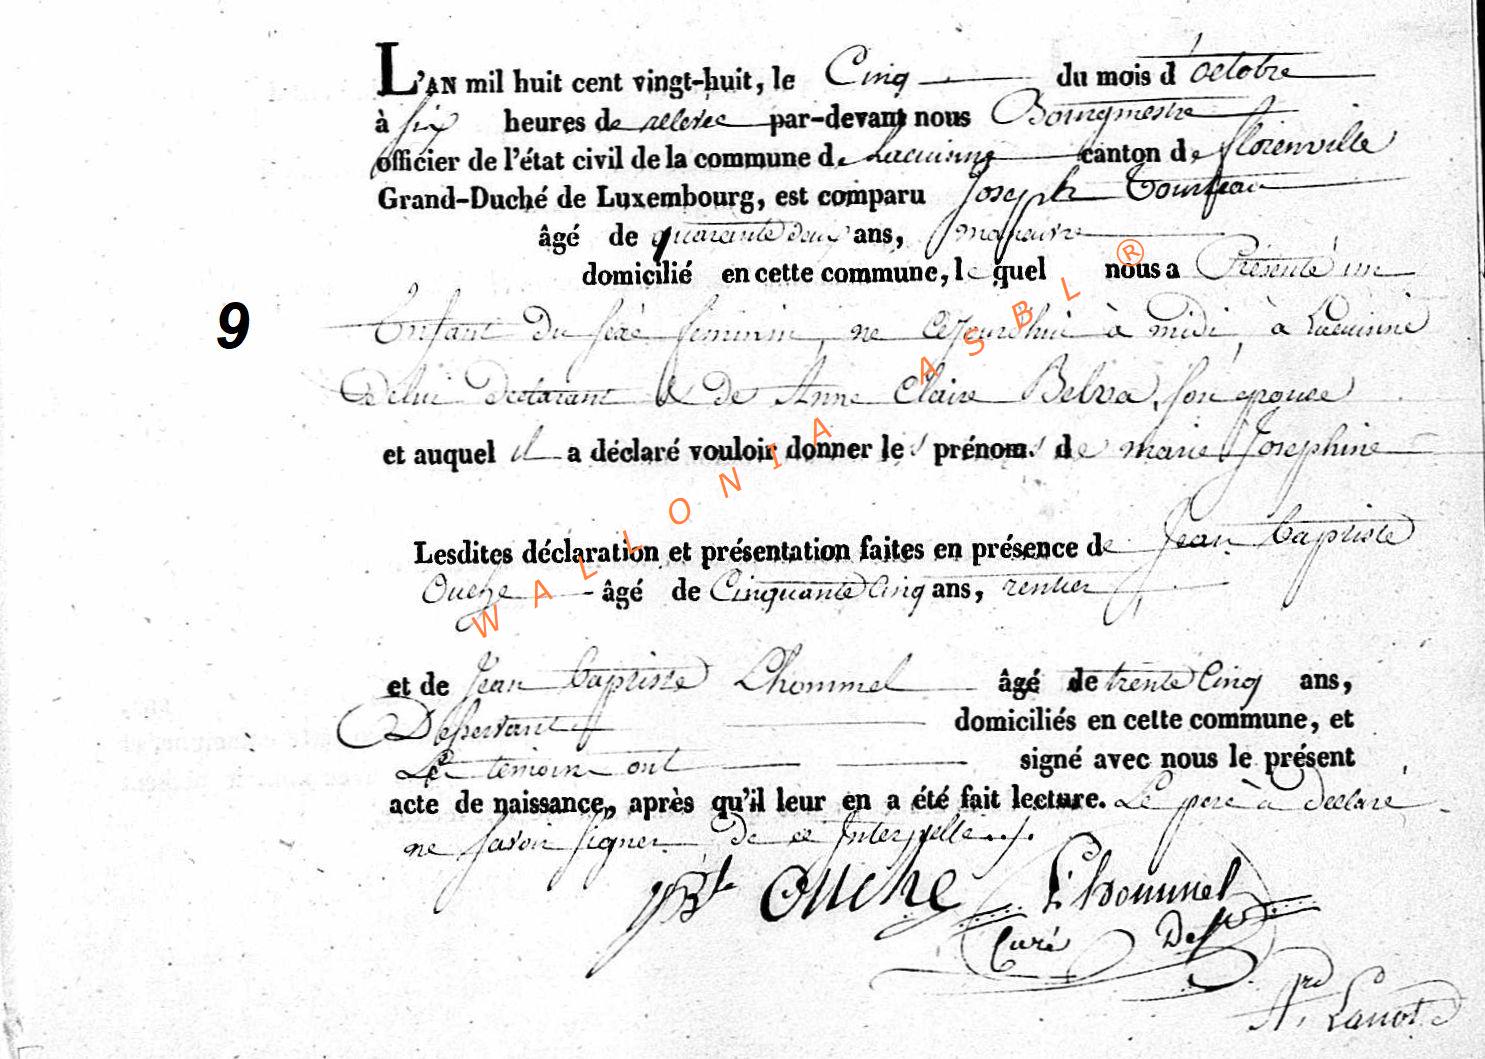 L'AN mil huit cent vingt-huit, le Cinq du mois d'octobre
à six heures de relevée par-devant nous Bourgmestre
officier de l'état civil de la commune de Lacuisine canton de florenville
Grand-Duché de Luxembourg, est comparu Joseph
âgé de quarante deux ans, manœuvre
domicilié en cette commune, lequel nous a Présenté un
9
Enfant du sexe feminin, né Cejourd'hui à midi, à Lacuisine
De lui Declarant & de Anne Claire Belva, son épouse
et auquel il a déclaré vouloir donner les prénoms de marie Josephine
Lesdites déclaration et présentation faites en présence de Jean baptiste
Ouche âgé de Cinquante Cinq ans, rentier
et de Jean baptiste Lhommel âgé de trente Cinq ans,
Desservant domiciliés en cette commune, et
Les temoins ont signé avec nous le présent
acte de naissance, après qu'il leur en a été fait lecture. Le pere a declaré
ne savoir signer De ce Interpellé ./.
JBte Ouche Lhommel
Curé Desst
Lanotte
WALLONIA ASBL ®